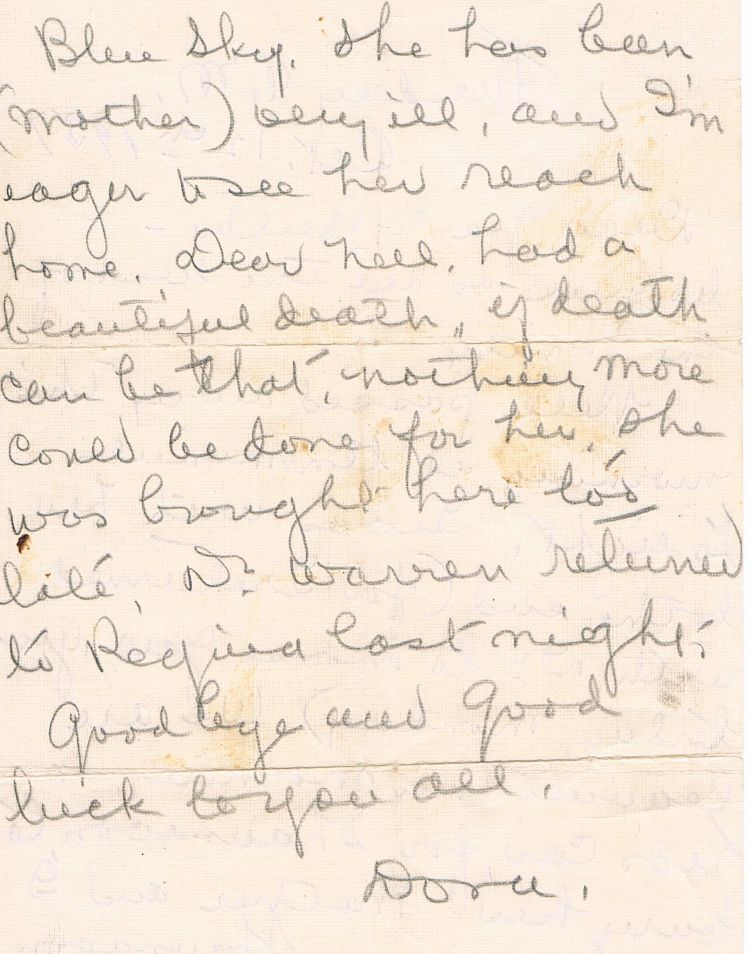 Blue Sky. She has been
(Mother) very ill, and I'm
eager to see her reach
home. Dear Nell, had a
beautiful death, if death
can be that, nothing more
could be done for her. She
was brought here too
late. Dr. Warren returned
to Regina last night.
Goodbye and good
luck to you all.
Dora.